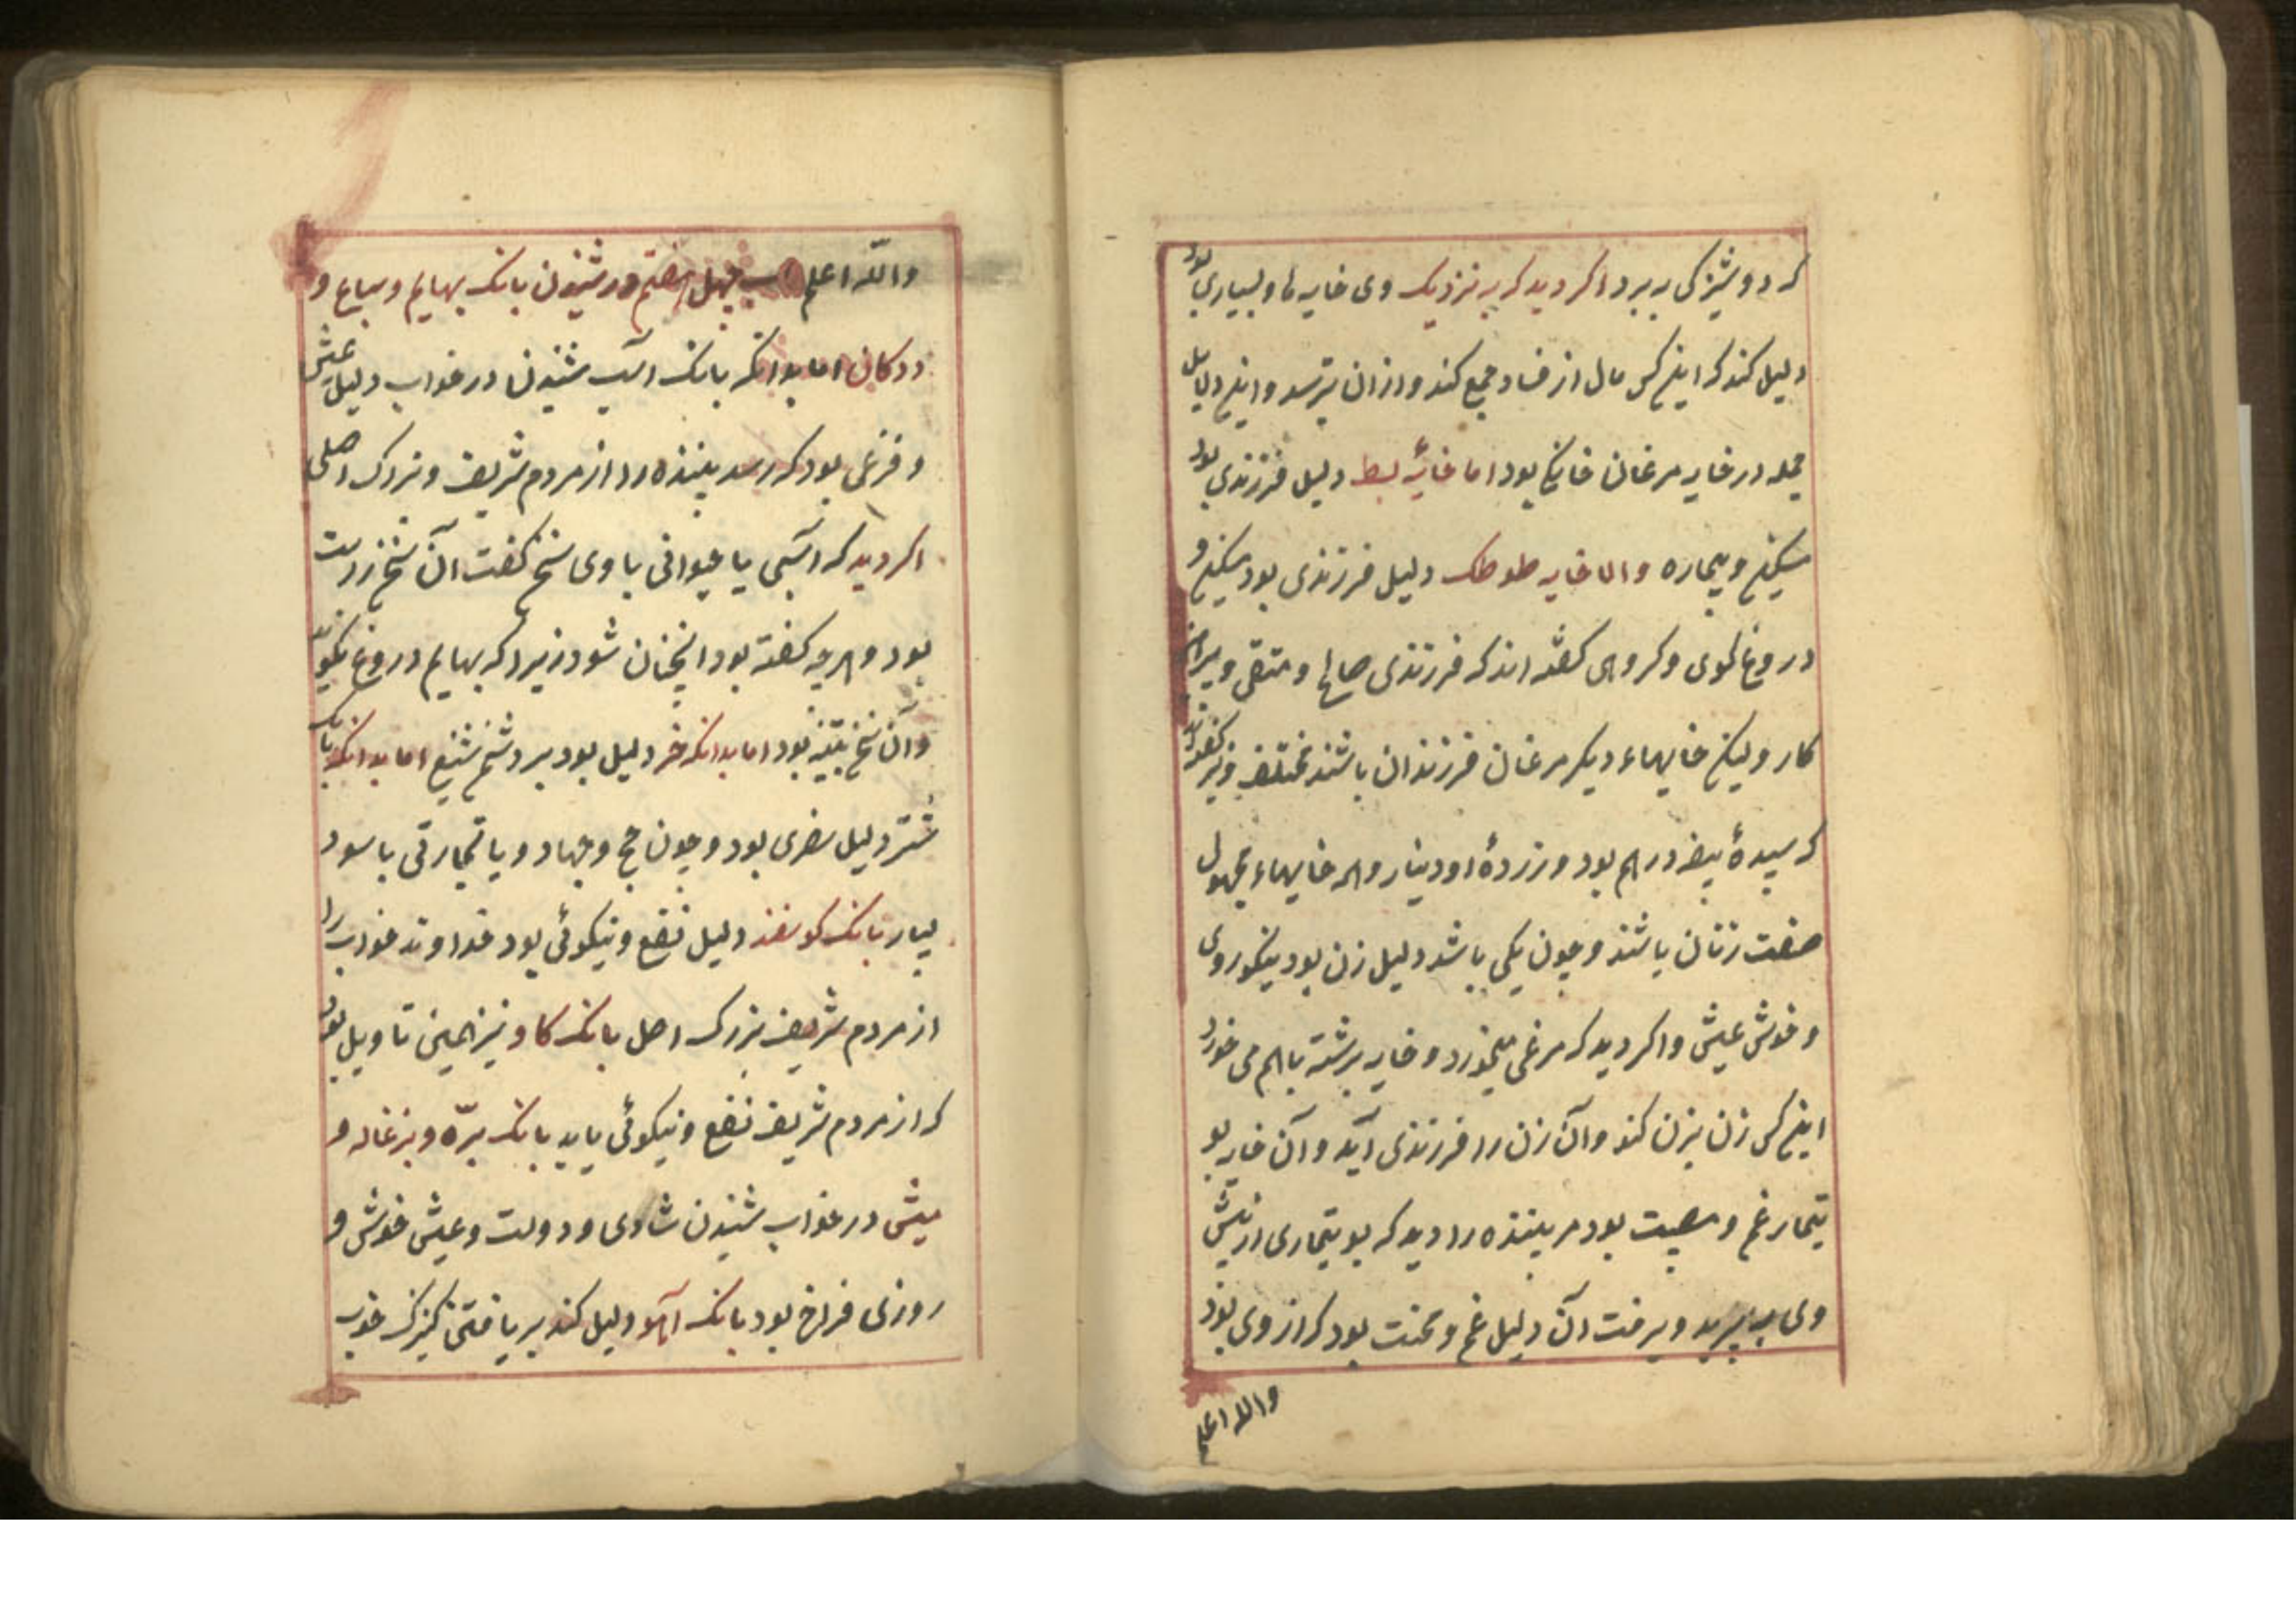 که دوشیزکی به برد اکر دید که به نزدیک وی خایه ها و بسیاری بود
دلیل کند که اینکس مال از فساد جمع کند و ازان بترسد و این دلایل
جمله در خایه مرغان خانکی بود اما خایهٔ بط دلیل فرزندی بود
مسکین و بیچاره واما خایه طوطک دلیل فرزندی بود مسکین و
دروغ کوی و کروهی کفته اند که فرزندی صالح و متقی و
کار ولیکن خایهاء دیکر مرغان فرزندان باشند مختلف ونیز کفته اند
که سپیدهٔ بیضه درهم بود و زردهٔ او دینار وهمه خایهاء مجهول
صفت زنان باشند و چون یکی باشد دلیل زن بود نیکوروی
و خوش عیش واکر دید که مرغی میخورد و خایه برشته باهم می خورد
اینکس زن بزن کند وآن زن را فرزندی آید وآن خایه بو
تیمار غم و مصیبت بود مر بیننده را دید که بوتیماری از پیش
وی بپرید و برفت آن دلیل غم و محنت بود که از وی بود
والله اعلم
والله اعلم باب چهل هفتم در شنیدن بانک بهایم و سباع و
ددکان اما بدانکه بانک اسب شنیدن در خواب دلیل عیش
و فرخی بود که رسد بیننده را از مردم شریف و بزرک اصلی
اکر دید که اسبی یا حیوانی با وی سخن کفت آن سخن راست
بود و هرچه کفته بود انچنان شود زیراکه بهایم دروغ نکویند
وآن سخن بتنبیه بود اما بدانکه خر دلیل بود بر دشمن شنیع اما بدانکه بانک
شتر دلیل سفری بود و چون حج و جهاد و یا تجارتی با سود
بسیار بانک کوسفند دلیل نفع و نیکوئی بود خداوند خواب را
از مردم شریف بزرک اصل بانک کاو نیز همین تاویل بود
که از مردم شریف نفع و نیکوئی یابد بانک برّه و بزغاله و
میش در خواب شنیدن شادی و دولت و عیش خوش و
روزی فراخ بود بانک آهو دلیل کند بر یافتن کنیزک خوب